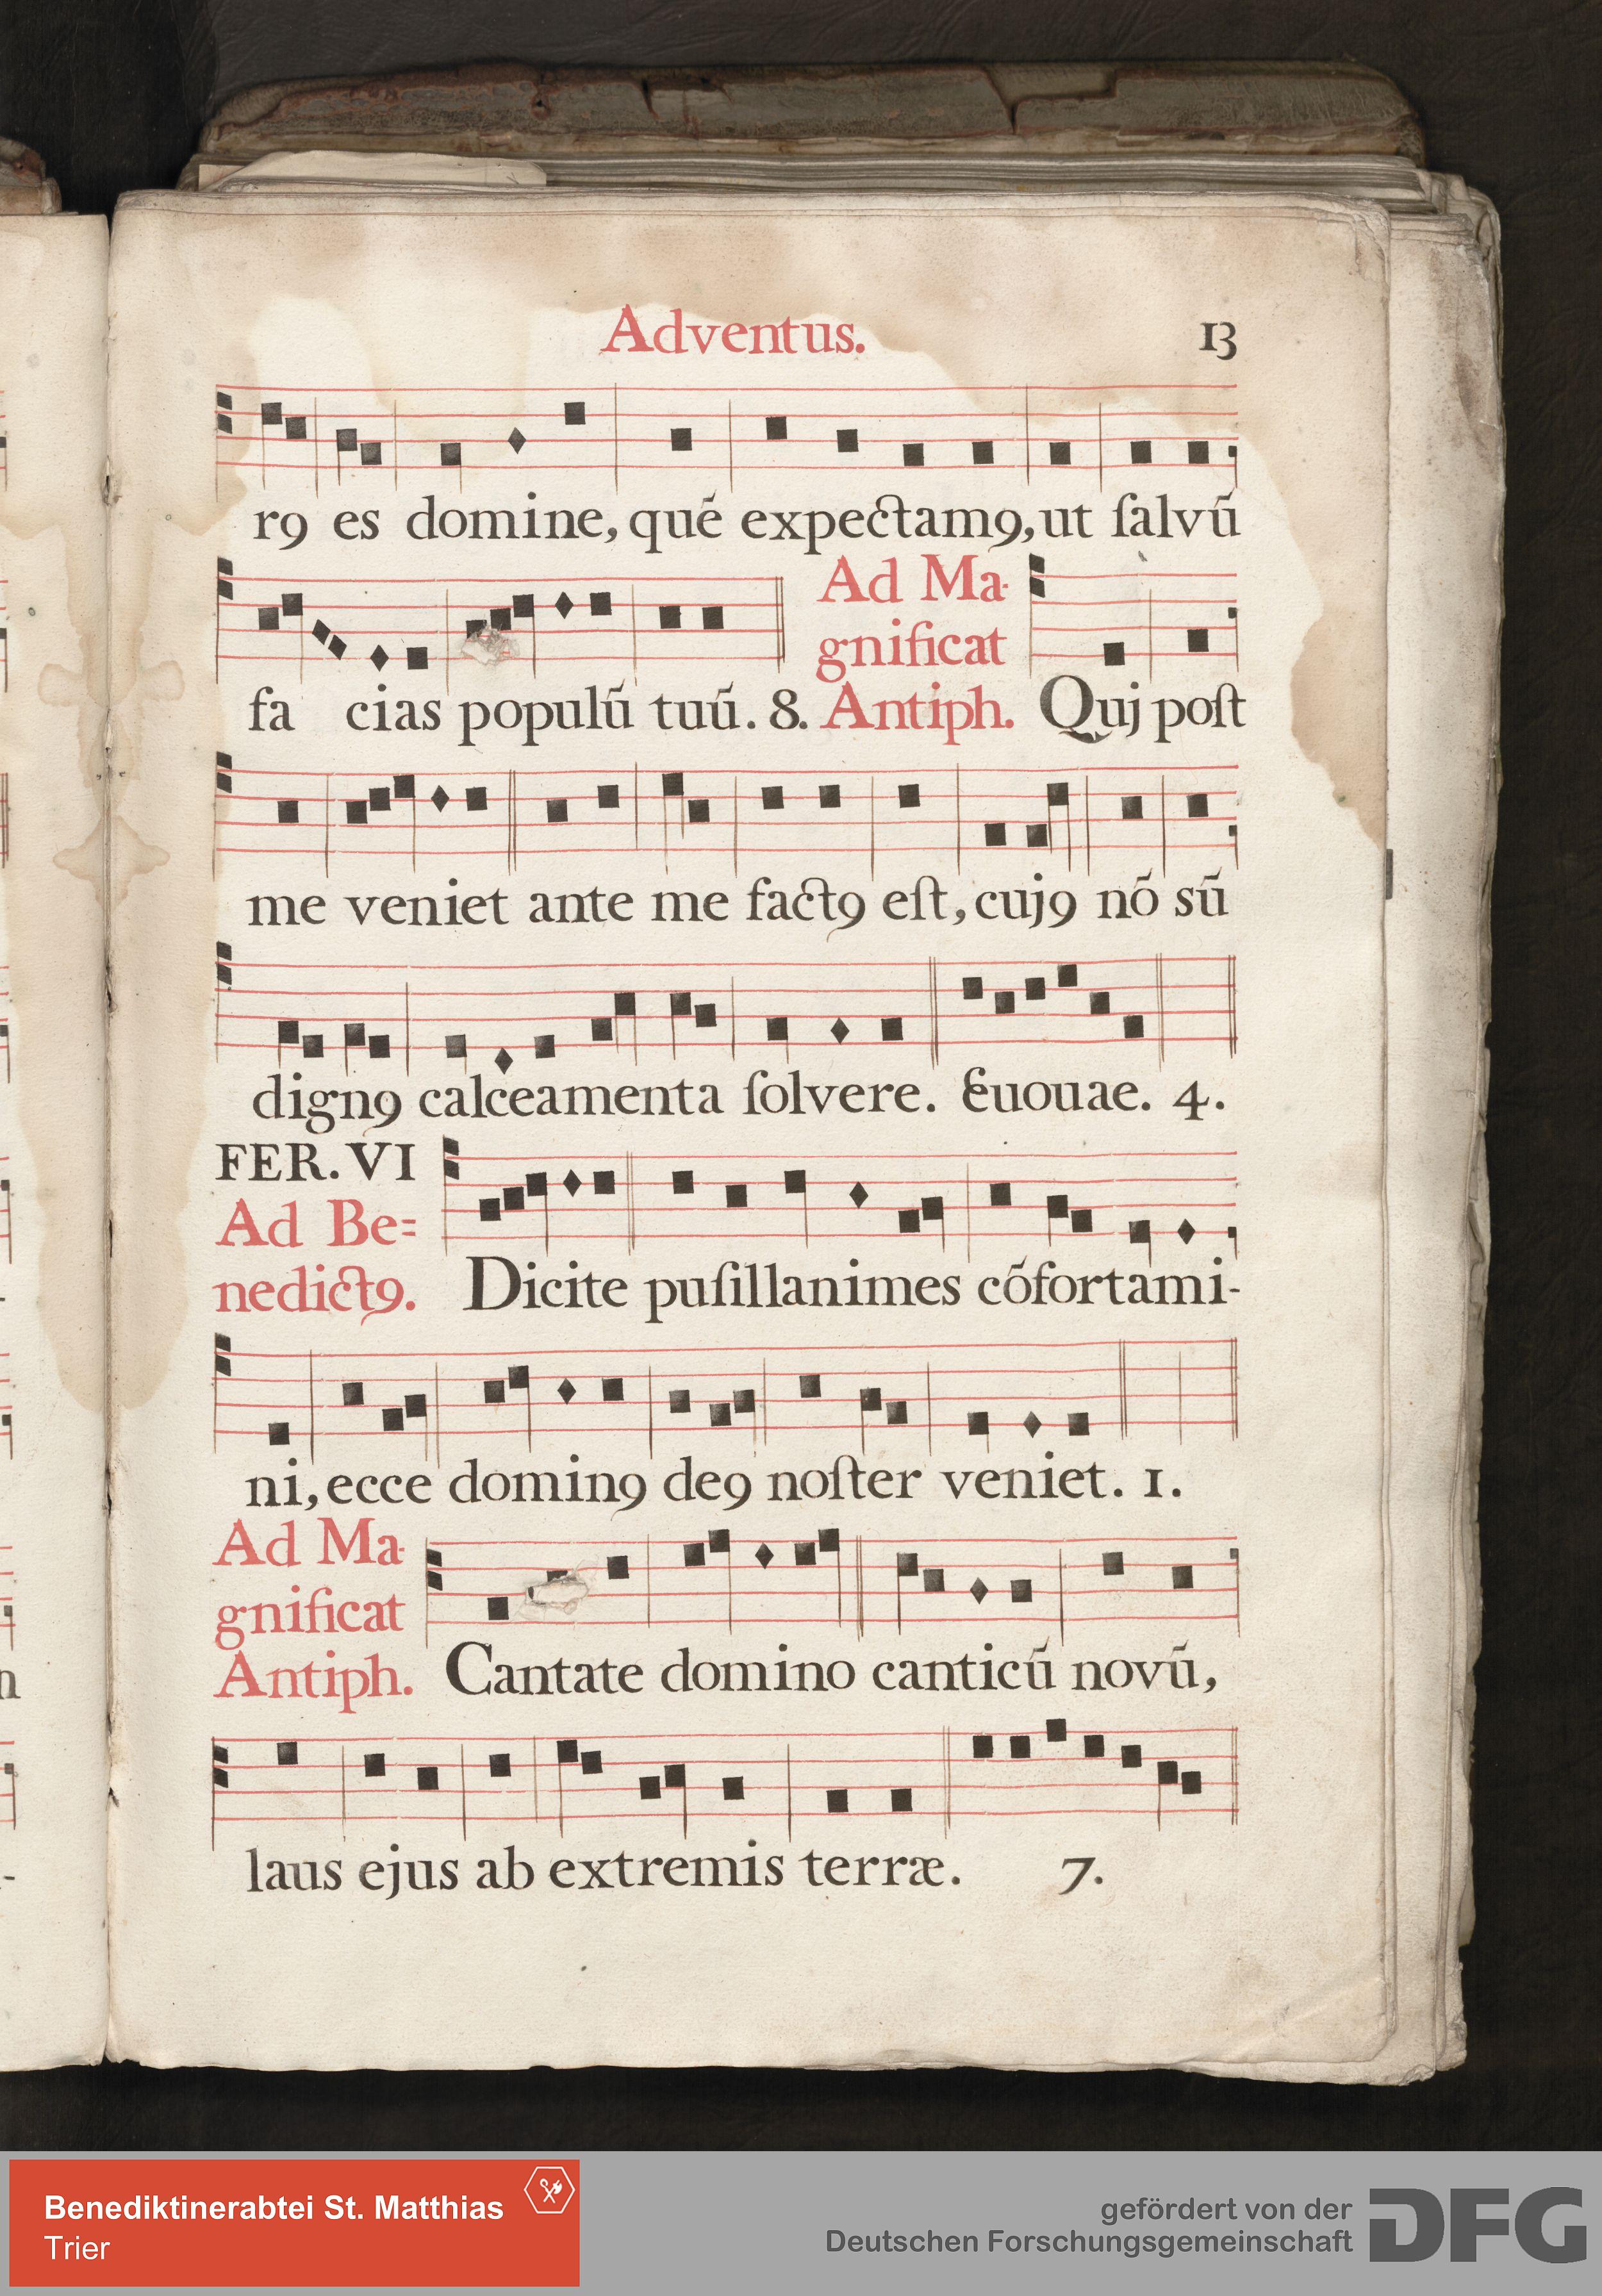 Adventus. 13
r9 es domine, qué expectam9, ut ſalvũ
Ad Ma-
gnificat
fa cias populũ tuũ. 8. Antiph. Quj poſt
me veniet ante me fact9 eſt, cuj9 nõ sũ
dign9 calceamenta ſolvere. Euouae. 4.
FER. VI
Ad Be=
nedict9. Dicite puſillanimes cõfortami-
ni, ecce domin9 de9 noſter veniet. 1.
Ad Ma-
gnificat
Antiph. Cantate domino canticũ novũ,
laus ejus ab extremis terræ. 7.
Benediktinerabtei St. Matthias
Trier
gefördert von der
Deutschen Forschungsgemeinschaft
DFG